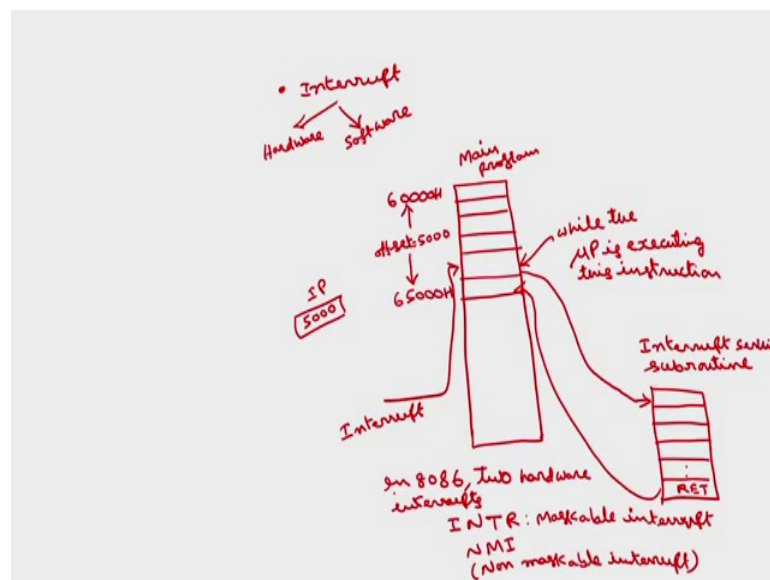 • Interruft
Hardware Software
Main
program
60000H
offset:5000
65000H
IP
5000
while the
μP is executing
this instruction
Interruft
Interruft servi
subroutine
RET
In 8086, two hardware
interrufts
INTR: Maskable interruft
NMI
(Non maskable interruft)